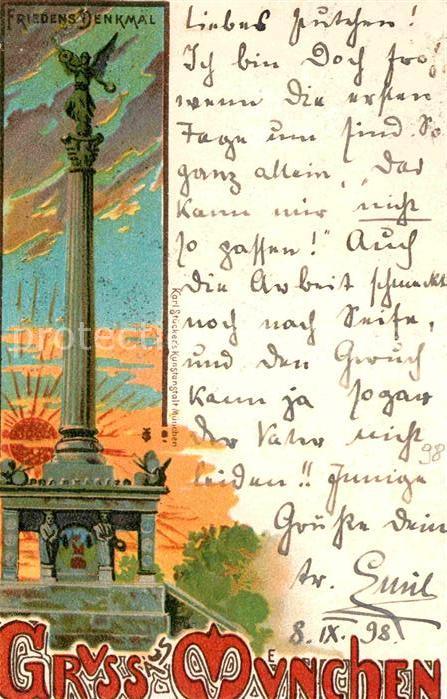 FRIEDENSDENKMAL
liebes Putchen!
Ich bin doch froh
wenn die ersten
Tage um sind. So
ganz allein, "das
kann mir nicht
so passen!" Auch
die Arbeit schmeckt
noch nach Seife,
und den Geruch
kann ja sogar
der Vater nicht
leiden!! Innige
Grüße dein
tr. Emil
8. IX. 98.
98
Karl Stücker's Kunstanstalt München
protect
GRUSS AUS MÜNCHEN